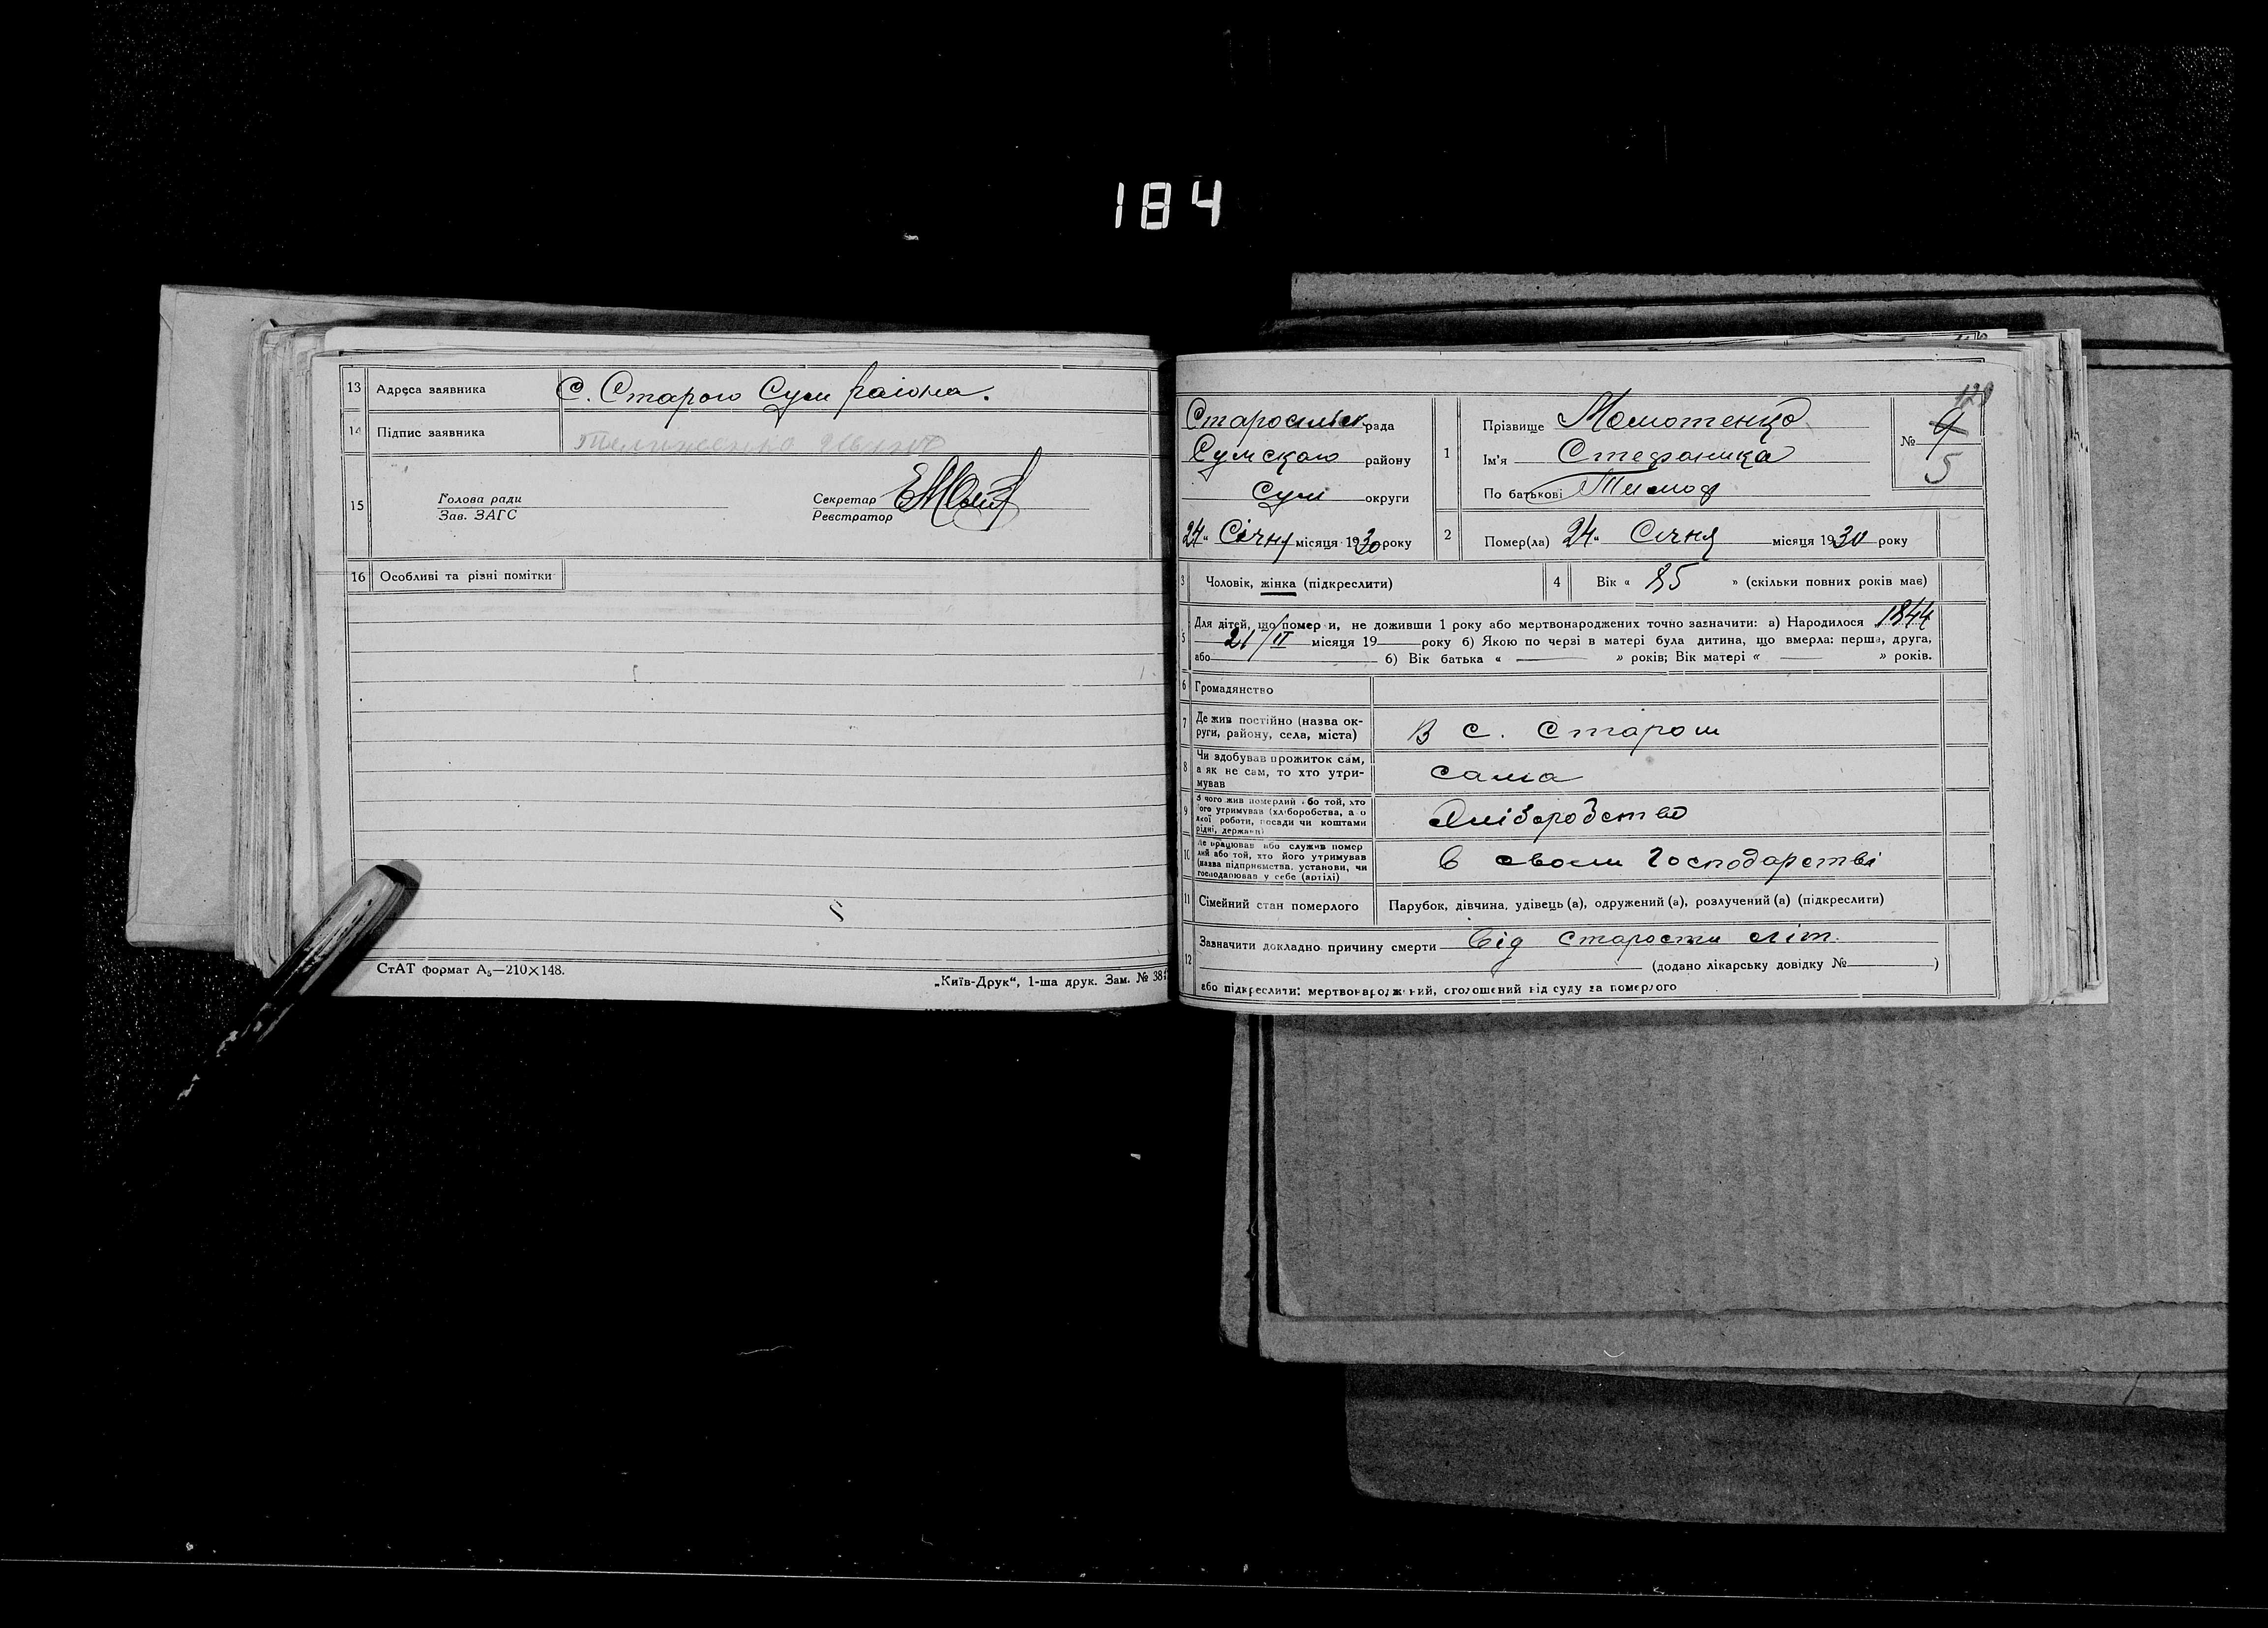 184
13 Адреса заявника С. Старою Сум района.
14 Підпис заявника
15 Голова ради
Зав. ЗАГС
Секретар
Реєстратор
16 Особливі та різні помітки
СтАТ формат А5—210×148.
„Київ-Друк“, 1-ша друк. Зам. № 38
120
Старосільск рада
Сумского району
Сум округи
24 „ Січня місяця 1930 року
1 Прізвище Момотенко
Ім'я
По батькові Тимоф
№ 9
5
2 Помер(ла) 24 „ Січня місяця 1930 року
3 Чоловік, жінка (підкреслити)
4 Вік « 85 » (скільки повних років має)
5 Для дітей, що помер и, не доживши 1 року або мертвонароджених точно зазначити: а) Народилося 1844
21/II місяця 19 року б) Якою по черзі в матері була дитина, що вмерла: перша, друга,
або б) Вік батька « » років; Вік матері « » років.
6 Громадянство
7 Де жив постійно (назва ок-
руги, району, села, міста) В с. Старом
8 Чи здобував прожиток сам,
а як не сам, то хто утри-
мував сама
9 З чого жив померлий або той, хто
його утримував (хліборобства, а о
якої роботи, посади чи коштами
рідні, держави) Хліборобство
10 Де працював або служив помер
лий або той, хто його утримував
(назва підприємства, установи, чи
господарював у себе (артілі) в своем господарстві
11 Сімейний стан померлого Парубок, дівчина, удівець (а), одружений (а), розлучений (а) (підкреслити)
12 Зазначити докладно причину смерти від старости літ.
(додано лікарську довідку № )
або підкреслити: мертвонароджений, оголошений від суду за померлого